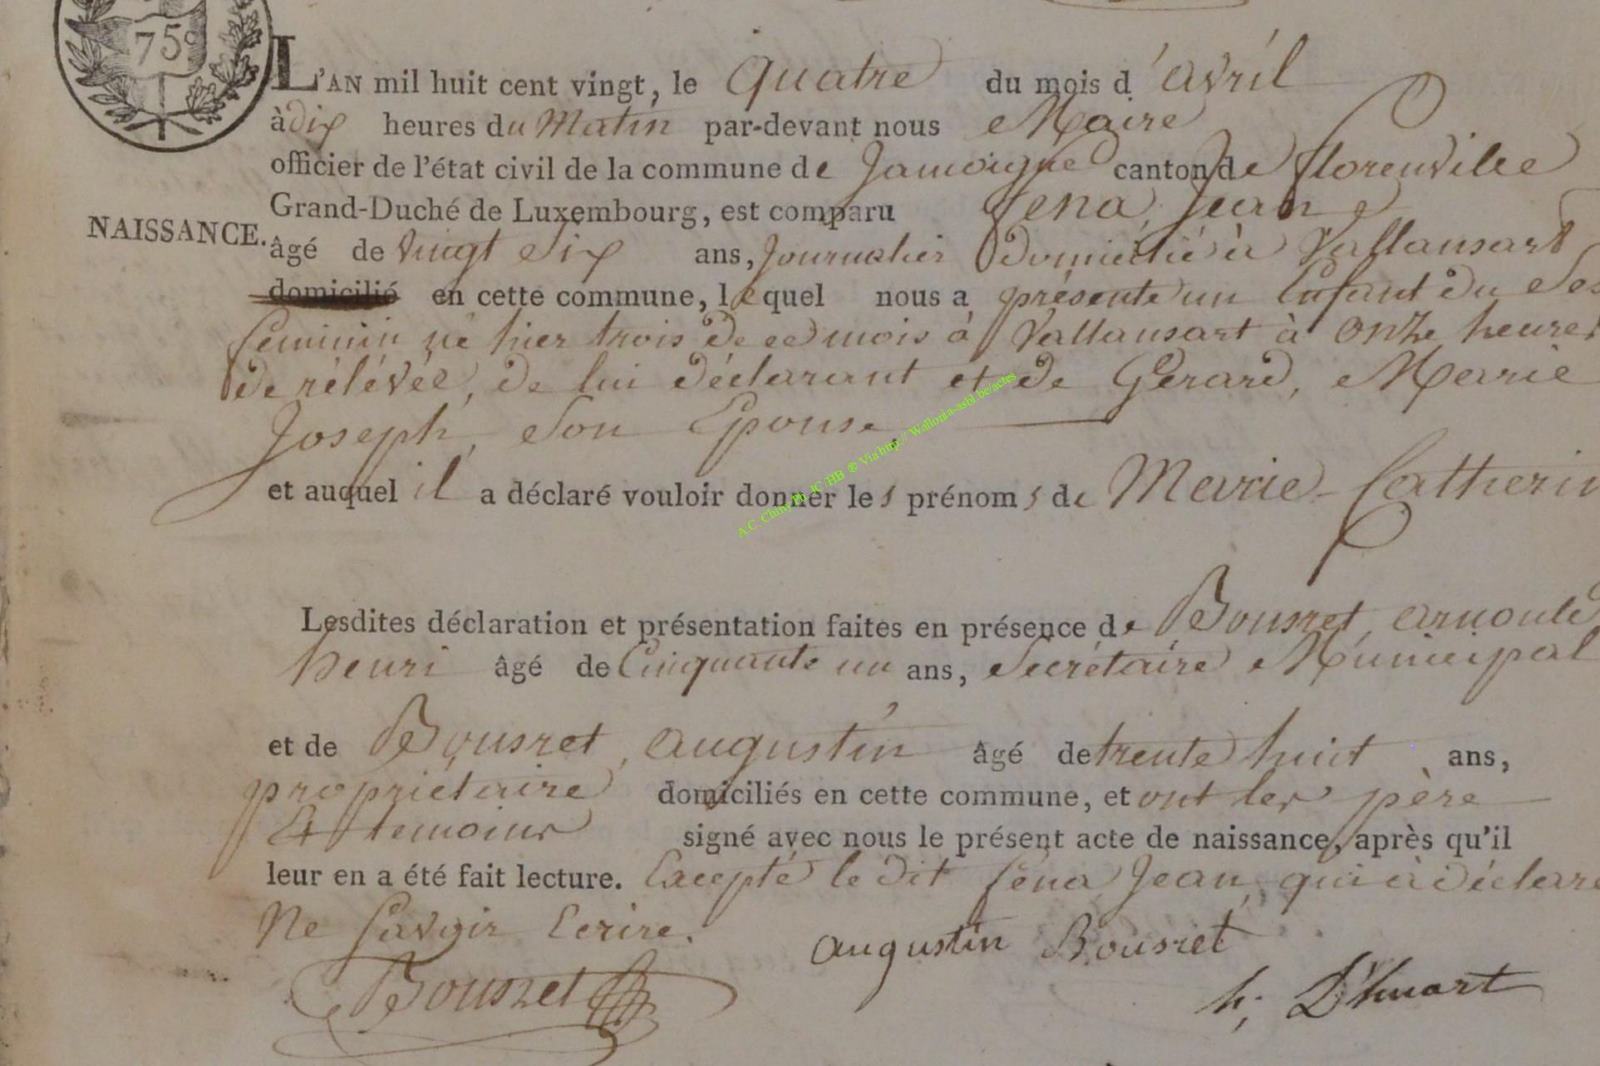 75c
L'AN mil huit cent vingt, le quatre du mois d'avril
à dix heures du Matin par-devant nous Maire
officier de l'état civil de la commune de Jamoigne canton de florenville
Grand-Duché de Luxembourg, est comparu fena, Jean
NAISSANCE.
âgé de vingt six ans, Journalier Domicilié à Vallansart
domicilié en cette commune, lequel nous a présenté un Enfant du Sex
feminin né hier trois de ce mois à Vallansart à onze heures
de rélévée, de lui déclarant et de Gérard, Marie
Joseph, Son Epouse
et auquel il a déclaré vouloir donner les prénoms de Marie-Catherin
Lesdites déclaration et présentation faites en présence de Bousret, arnould
henri âgé de Cinquante un ans, Secrétaire Municipal
et de Bousret, augustin âgé de trente huit ans,
propriétaire domiciliés en cette commune, et ont les père
Et temoins signé avec nous le présent acte de naissance, après qu'il
leur en a été fait lecture. Excepté le dit fena Jean, qui à déclaré
Ne Savoir Ecrire.
augustin Bousret
Bousret
h; D'huart
A.C. Chiny Ph. JC HB ® Via http:// Wallonia-asbl.be/actes